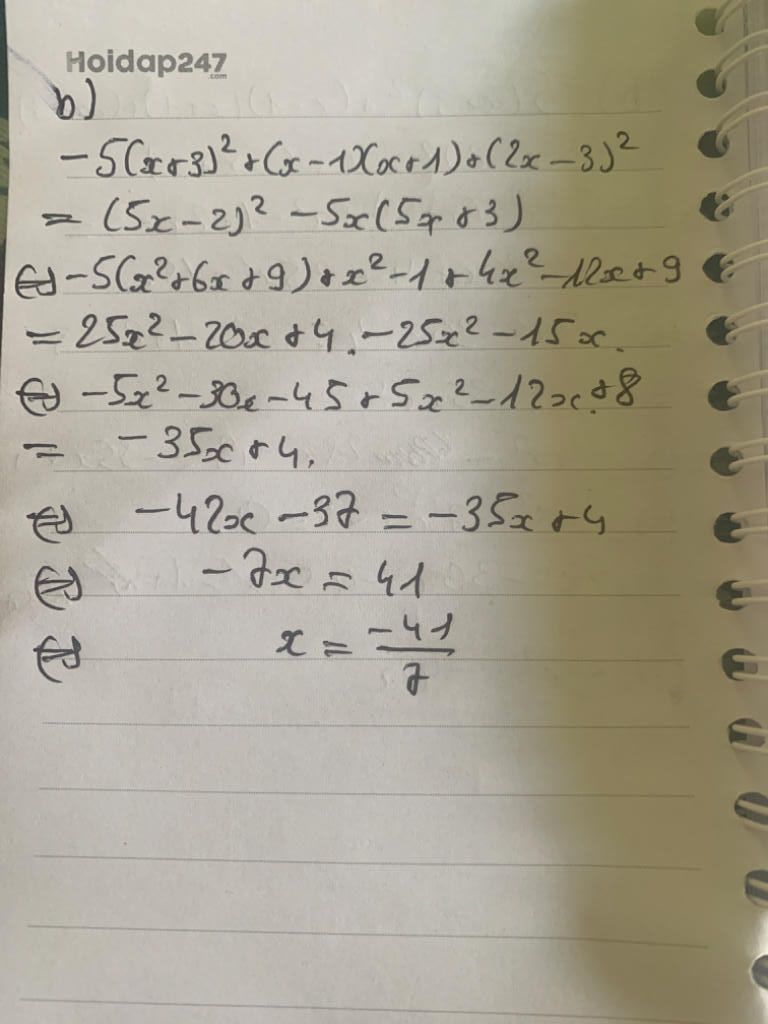 Hoidap247
.com
b)
-5(x+3)² + (x-1)(x+1) + (2x-3)²
= (5x-2)² - 5x(5x+3)
⇔ -5(x²+6x+9) + x²-1 + 4x²-12x+9
= 25x² - 20x + 4 - 25x² - 15x.
⇔ -5x² - 30x - 45 + 5x² - 12x + 8
= -35x + 4.
⇔ -42x - 37 = -35x + 4
⇔ -7x = 41
⇔ x = -41/7